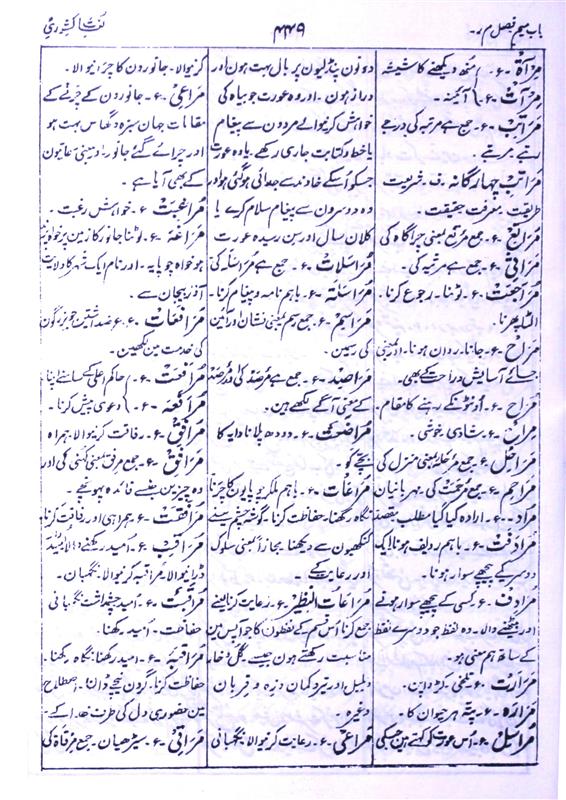 باب میم فصل م ر۔
۴۴۹
لغات کشوری
مِرْآۃٌ ۔ ع۔ } منھ دیکھنے کا شیشہ
مِرْآت ۔ ع۔ } آئینہ۔
مَراتِب ۔ ع۔ جمع ہے مرتبہ کی درجے
رتبے مرتبے۔
مَراتِب چہار گانہ۔ ف۔ شریعت
طریقت معرفت حقیقت
مَراتِع ۔ ع۔ جمع مرتع بمعنی چراگاہ کی
مَراثی ۔ ع۔ جمع ہے مرثیہ کی۔
مُراجَعَت ۔ ع۔ لوٹنا۔ رجوع کرنا۔
الٹا پھرنا۔
مَراح ۔ ع۔ جانا۔ روان ہونا۔ اور بمعنی
جائے آسایش و راحت کے بھی۔
مُراح ۔ ع۔ اونٹونکے رہنے کا مقام۔
مِراح ۔ ع۔ شادی۔ خوشی۔
مَراحِل ۔ ع۔ جمع مرحلہ بمعنی منزل کی
مَراحِم ۔ ع۔ جمع مرحمت کی مہربانیان
مُراد ۔ ع۔ ارادہ کیا گیا مطلب مقصد
مُرادَفَت ۔ ع۔ باہم ردیف ہونا ایک
دوسرے کے پیچھے سوار ہونا۔
مُرادِف ۔ ع۔ کسی کے پیچھے سوار ہونے
اور بیٹھنے والا۔ وہ لفظ جو دوسرے لفظ
کے ساتھ ہم معنی ہو۔
مَرارَت ۔ ع۔ تلخی۔ کڑواپن۔
مَرارَہ ۔ ع۔ پتّہ ہر حیوان کا۔
مُراسِل ۔ ع۔ اُس عورت کو کہتے ہین جسکی
دونون پنڈلیون پر بال بہت ہون اور
دراز ہون۔ اور وہ عورت جو بیاہ کی
خواہش کرنیوالے مردون سے پیغام
یا خط و کتابت جاری رکھے۔ یا وہ عورت
جسکو اُسکے خاوند سے جدائی ہوگئی ہو اور
وہ دوسرون سے پیغام سلام کرے یا
کلان سال اور سن رسیدہ عورت
مُراسَلات ۔ ع۔ جمع ہے مراسلہ کی
مُراسَلَہ ۔ ع۔ باہم نامہ و پیغام کرنا۔
مَراسِم ۔ ع۔ جمع رسم بمعنی نشان اور آئین
کی رسمین۔
مَراصِد ۔ ع۔ جمع ہے مرصد کی اور مرصد
کے معنی آگے لکھے ہین۔
مُراضَعَت ۔ ع۔ دودھ پلانا دایہ کا
بچے کو۔
مُراعات ۔ ع۔ باہم ملکر چوپایون کا چرانا
نگاہ رکھنا۔ حفاظت کرنا۔ گوشۂ چشم سے
کنکھیون سے دیکھنا۔ مجازاً بمعنی سلوک
اور رعایت کے۔
مُراعات النظیر ۔ ع۔ رعایت کرنا یعنے
جمع کرنا اُس قسم کے لفظون کا جو آپس مین
مناسبت رکھتے ہون جیسے گل و خار
و بلبل اور تیر و کمان و زہ و قربان
وغیرہ۔
مُراعی ۔ ع۔ رعایت کرنیوالا۔ نگہبانی
کرنیوالا۔ جانورون کا چرانیوالا۔
مَراعی ۔ ع۔ جانورون کے چرنے کے
مقامات جہان سبزہ و گھاس بہت ہو
اور چرائے گئے جانور اور بمعنی رعایتون
کے بھی آیا ہے۔
مُراغَبَت ۔ ع۔ خواہش۔ رغبت۔
مَراغَہ ۔ ع۔ لوٹنا جانور کا زمین پر خواہ پشہ
ہو خواہ چوپایہ۔ اور نام ایک شہر کا ولایت
آذربیجان سے۔
مُرافَعات ۔ ع۔
کی خدمت مین لکھین۔
مُرافَعَت ۔ ع۔ } حاکم اعلیٰ کے سامنے اپنا
مُرافَعَہ ۔ ع۔ } دعویٰ پیش کرنا۔
مُرافِق ۔ ع۔ رفاقت کرنیوالا۔ ہمراہ
مَرافِق ۔ ع۔ جمع مرفق بمعنی کہنی کی اور
وہ چیزین جنسے فائدہ پہونچے۔
مُرافَقَت ۔ ع۔ ہمراہی اور رفاقت کرنا
مُراقِب ۔ ع۔ امید رکھنے والا۔
ڈرانیوالا۔ مراقبہ کرنیوالا۔ نگہبان۔
مُراقَبَت ۔ ع۔ امید چشمداشت نگہبانی
حفاظت۔ امید رکھنا۔
مُراقَبَہ ۔ ع۔ امید رکھنا۔ نگاہ رکھنا۔
حفاظت کرنا۔ گردن نیچے ڈالنا۔ اصطلاح
مین حضوری دل کی طرف خدا کے۔
مَراقی ۔ ع۔ سیڑھیان۔ جمع مرقاۃ کی